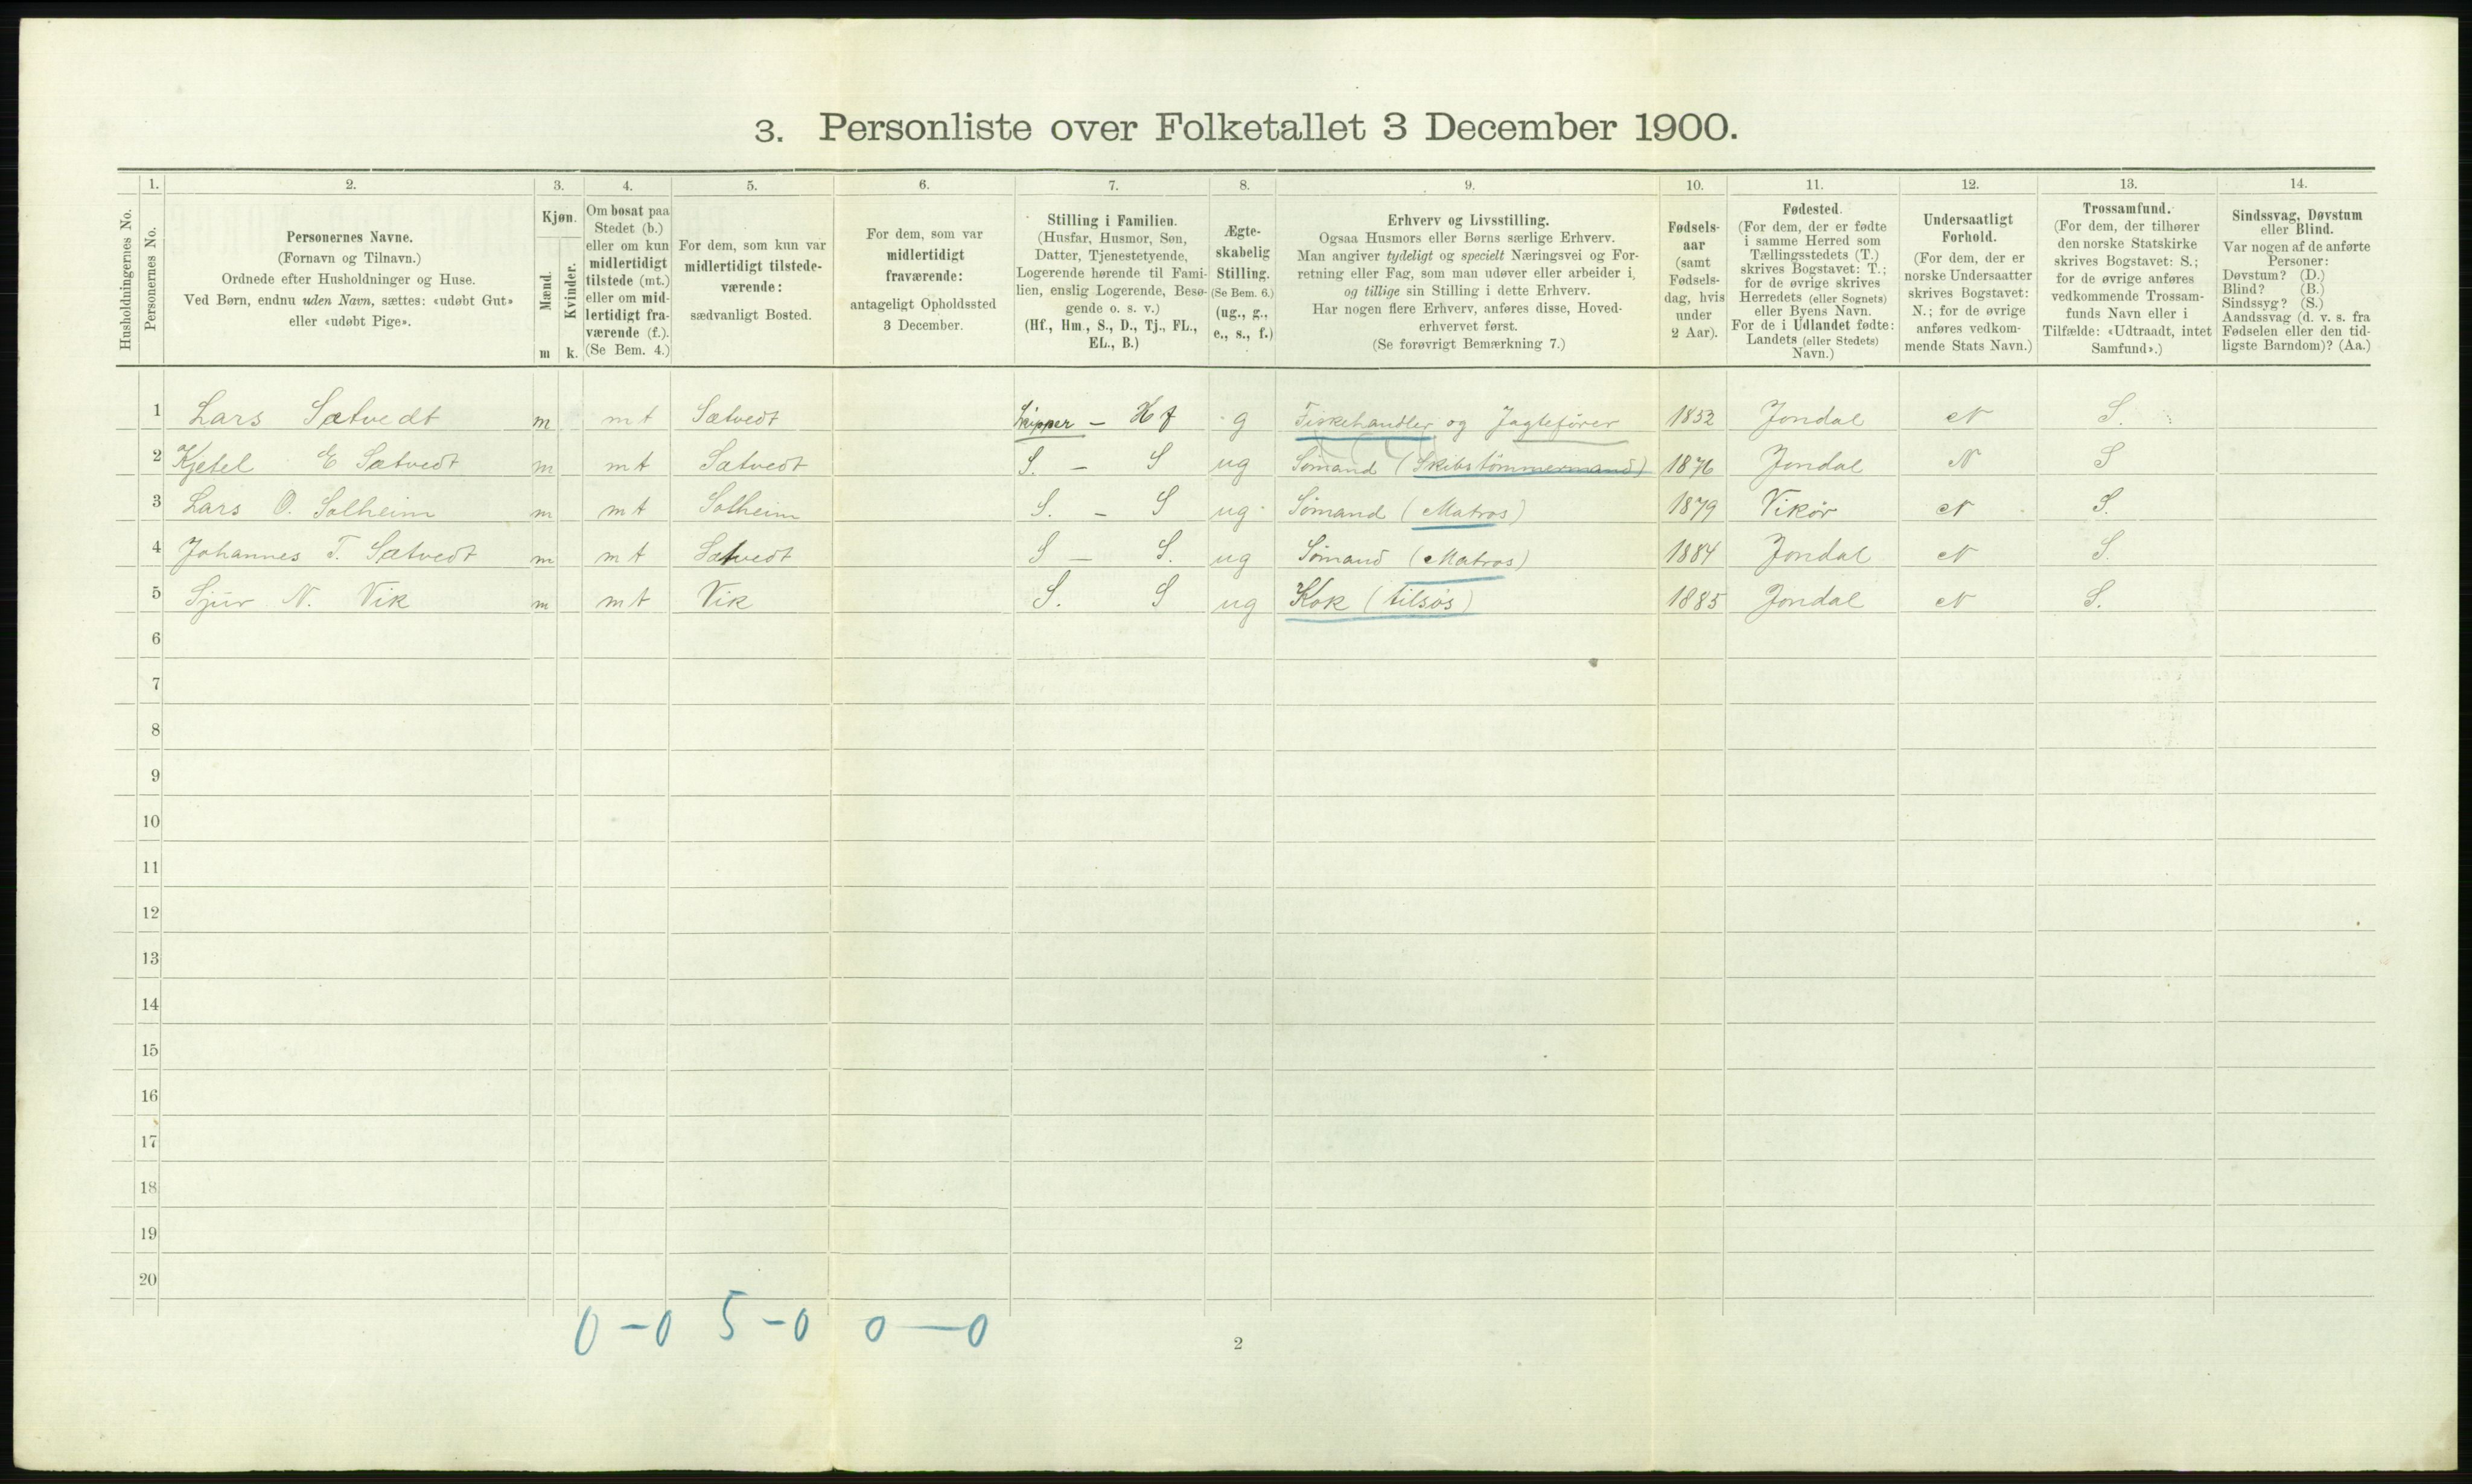 3. Personliste over Folketallet 3 December 1900.
1. 2. 3. 4. 5. 6. 7. 8. 9. 10. 11. 12. 13. 14.
Husholdningernes No.
Personernes No.
Personernes Navne.
(Fornavn og Tilnavn.)
Ordnede efter Husholdninger og Huse.
Ved Børn, endnu uden Navn, sættes: «udøbt Gut»
eller «udøbt Pige».
Kjøn.
Mænd.
Kvinder.
m k.
Om bosat paa
Stedet (b.)
eller om kun
midlertidigt
tilstede (mt.)
eller om mid-
lertidigt fra-
værende (f.).
(Se Bem. 4.)
For dem, som kun var
midlertidigt tilstede-
værende:
sædvanligt Bosted.
For dem, som var
midlertidigt
fraværende:
antageligt Opholdssted
3 December.
Stilling i Familien.
(Husfar, Husmor, Søn,
Datter, Tjenestetyende,
Logerende hørende til Fami-
lien, enslig Logerende, Besø-
gende o. s. v.)
(Hf., Hm., S., D., Tj., FL.,
EL., B.)
Ægte-
skabelig
Stilling.
(Se Bem. 6.)
(ug., g.,
e., s., f.)
Erhverv og Livsstilling.
Ogsaa Husmors eller Børns særlige Erhverv.
Man angiver tydeligt og specielt Næringsvei og For-
retning eller Fag, som man udøver eller arbeider i,
og tillige sin Stilling i dette Erhverv.
Har nogen flere Erhverv, anføres disse, Hoved-
erhvervet først.
(Se forøvrigt Bemærkning 7.)
Fødsels-
aar
(samt
Fødsels-
dag, hvis
under
2 Aar).
Fødested.
(For dem, der er fødte
i samme Herred som
Tællingsstedets (T.)
skrives Bogstavet: T.;
for de øvrige skrives
Herredets (eller Sognets)
eller Byens Navn.
For de i Udlandet fødte:
Landets (eller Stedets)
Navn.)
Undersaatligt
Forhold.
(For dem, der er
norske Undersaatter
skrives Bogstavet:
N.; for de øvrige
anføres vedkom-
mende Stats Navn.)
Trossamfund.
(For dem, der tilhører
den norske Statskirke
skrives Bogstavet: S.;
for de øvrige anføres
vedkommende Trossam-
funds Navn eller i
Tilfælde: «Udtraadt, intet
Samfund».)
Sindssvag, Døvstum
eller Blind.
Var nogen af de anførte
Personer:
Døvstum? (D.)
Blind? (B.)
Sindssyg? (S.)
Aandssvag (d. v. s. fra
Fødselen eller den tid-
ligste Barndom)? (Aa.)
1 Lars Sætvedt m mt Sætvedt Skipper - Hf g Fiskehandler og Jagtefører 1853 Jondal N S.
2 Kjetel E Sætvedt m mt Sætvedt S. - S ug Sømand (Skibstømmermand) 1876 Jondal N S
3 Lars O. Solheim m mt Solheim S. - S ug Sømand (Matros) 1879 Vikør N S.
4 Johannes T. Sætvedt m mt Sætvedt S - S. ug Sømand (Matros) 1884 Jondal N S.
5 Sjur N. Vik m mt Vik S. S ug Kok (tilsøs) 1885 Jondal N S.
6
7
8
9
10
11
12
13
14
15
16
17
18
19
20
0-0 5-0 0-0
2